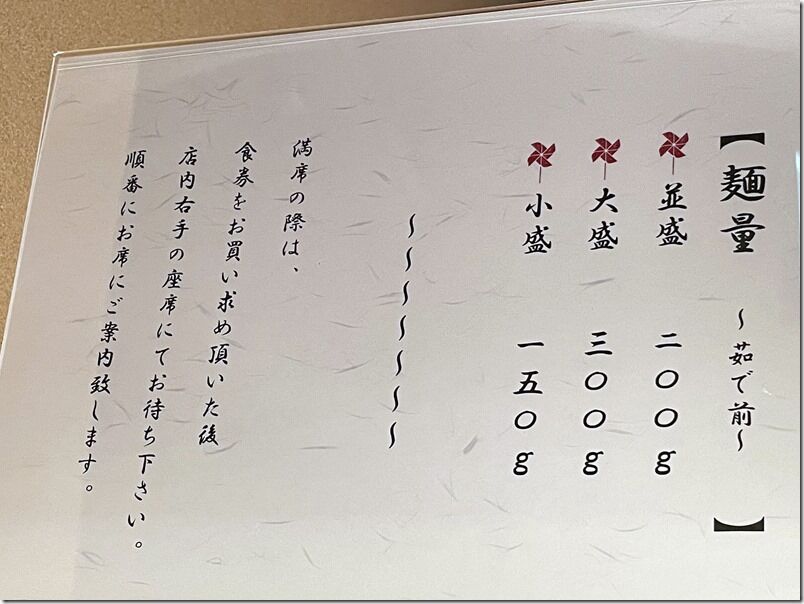 【麺量 ～茹で前～】
並盛 二〇〇g
大盛 三〇〇g
小盛 一五〇g
～～～～～～～
満席の際は、
食券をお買い求め頂いた後
店内右手の座席にてお待ち下さい。
順番にお席にご案内致します。